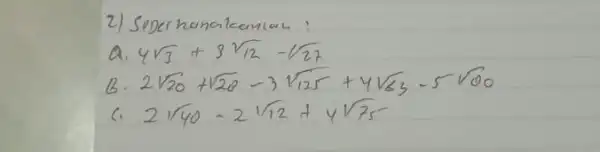 2) Sederhanakanlah !
a. 4√3 + 3√12 - √27
B. 2√20 + √28 - 3√125 + 4√63 - 5√80
C. 2√40 - 2√12 + 4√75